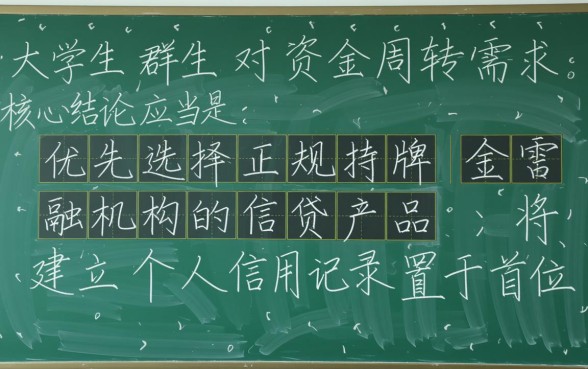 大学生群生对资金周转需求。
核心结论应当是：
优先选择正规持牌 金雷
融机构的信贷产品 ；将
建立个人信用记录置于首位